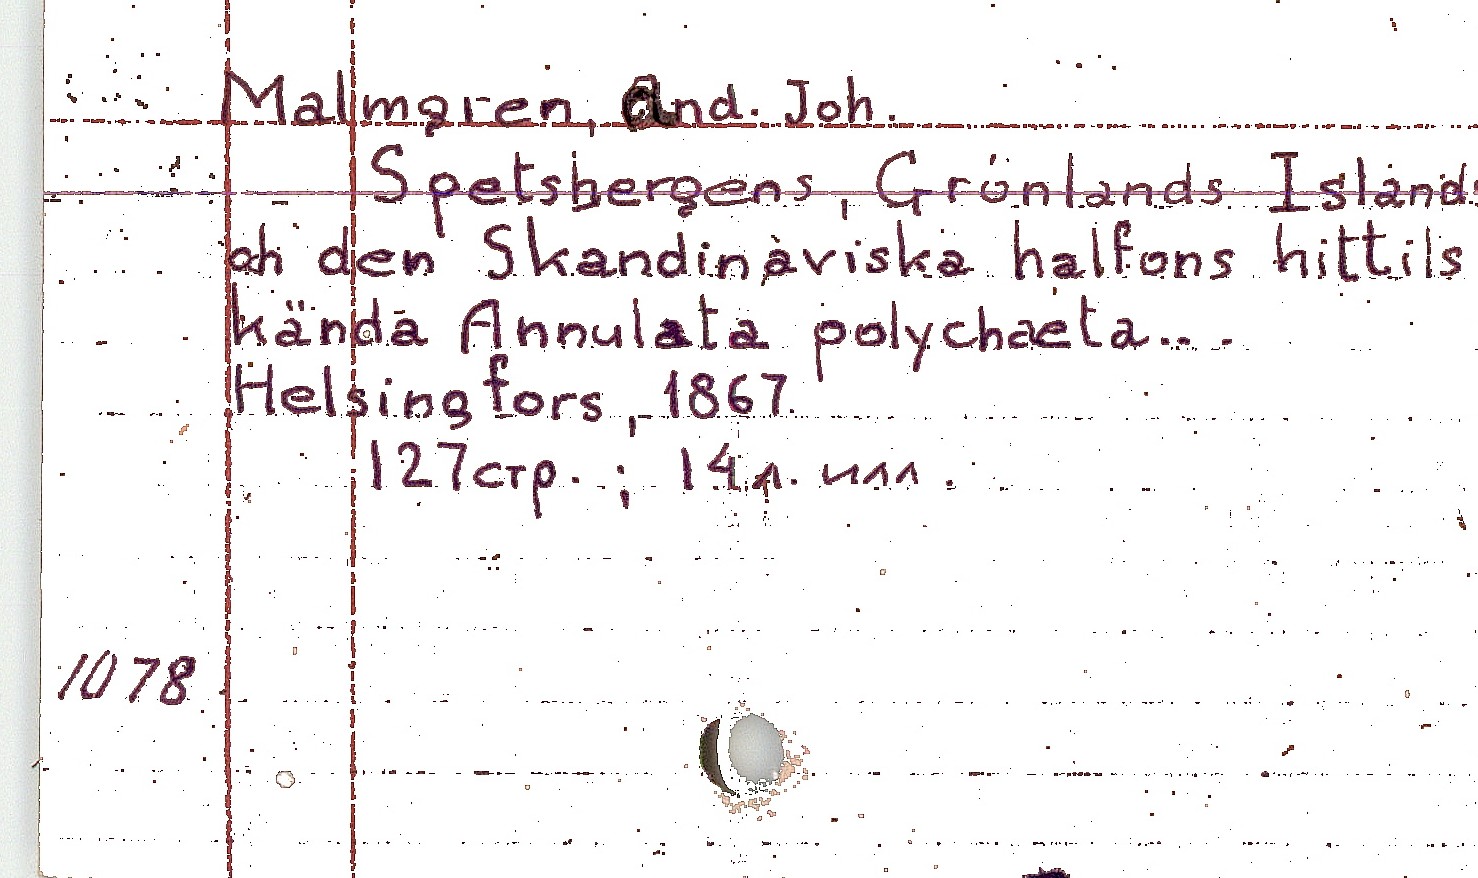 Malmgren, And. Joh.
Spetsbergens, Grönlands Islands
och den Skandinaviska halfons hittils
kända Annulata polychaeta...
Helsingfors, 1867.
127 стр. ; 14 л. илл.
1078